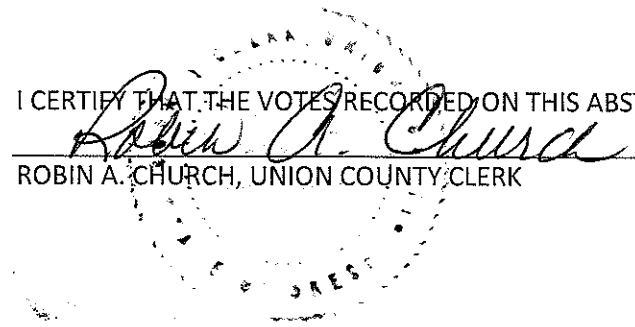 I CERTIFY THAT THE VOTES RECORDED ON THIS ABST
Robin A. Church
ROBIN A. CHURCH, UNION COUNTY CLERK